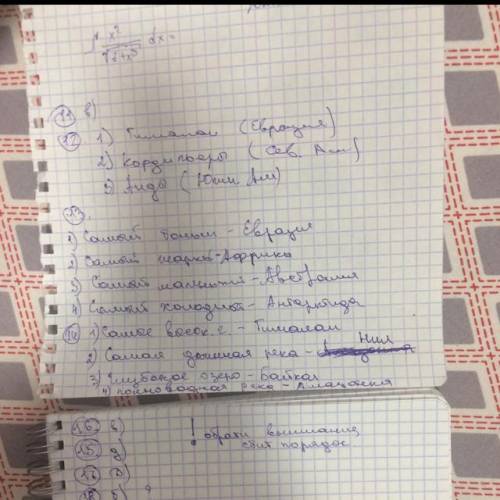 ∫ x² / √(1+x³) dx =
11 в)
12 1) Гималаи (Евразия)
2) Кордильеры (Сев. Ам)
3) Анды (Южн. Ам)
13.
1) Самый больш - Евразия
2) Самый жарк - Африка
3) Самый маленький - Австралия
4) Самый холодный - Антарктида
14 1) Самое высок. г. - Гималаи
2) Самая длинная река - Нил
3) Глубокое озеро - Байкал
4) полноводная река - Амазонка
16 в)
! обрати внимание
15 д)
сбит порядок
17
18 б)